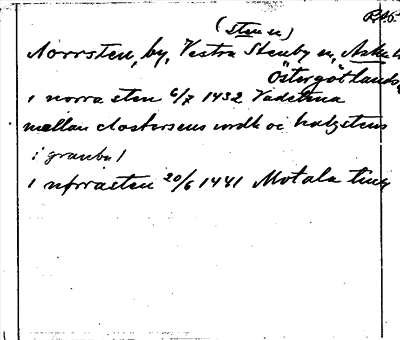 (stenen)
Norrsten, by, Västra Stenby sn, Aska h
Östergötlands
i norra sten 6/7 1432 Vadstena
mellan closterens ordh oc halgstens
i granbu/
i nørrasten 20/6 1441 Motala ting